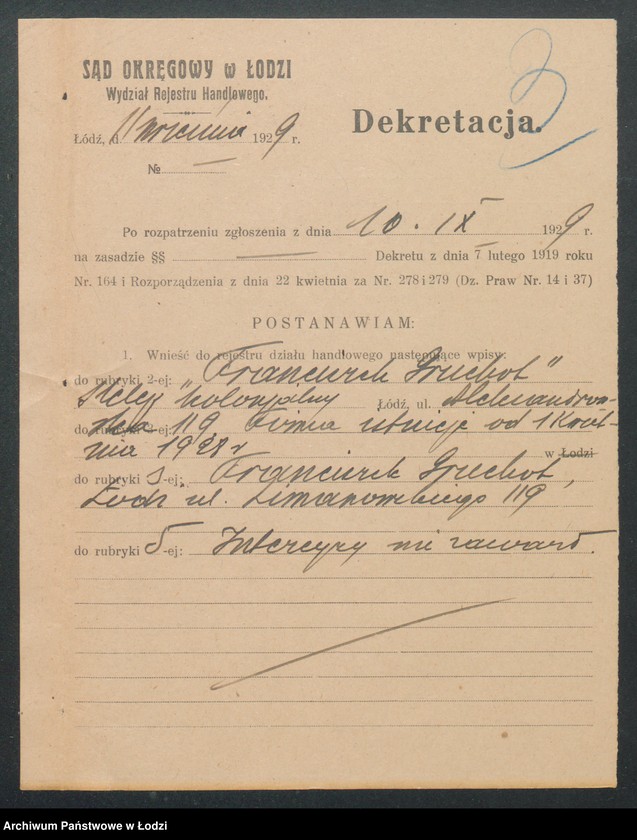 3
SĄD OKRĘGOWY w ŁODZI
Wydział Rejestru Handlowego.
Dekretacja.
Łódź, d. 11 września 1929 r.
№ —
Po rozpatrzeniu zgłoszenia z dnia 10. IX 1929 r.
na zasadzie §§ — Dekretu z dnia 7 lutego 1919 roku
Nr. 164 i Rozporządzenia z dnia 22 kwietnia za Nr. 278 i 279 (Dz. Praw Nr. 14 i 37)
POSTANAWIAM:
1. Wnieść do rejestru działu handlowego następujące wpisy:
do rubryki 2-ej: "Franciszek Gruchot"
Sklep kolonjalny Łódź, ul. Aleksandrow-
ska 119 Firma istnieje od 1 kwiet-
nia 1928 r w Łodzi
do rubryki 3-ej: Franciszek Gruchot,
Łódź ul. Limanowskiego 119
do rubryki 5-ej: Intercyzy nie zawarł.
Archiwum Państwowe w Łodzi